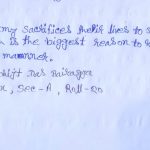 my sacrifices their lives to s
is the biggest reason to
manner.
Jas Bairagya
Sec-A, Roll-20